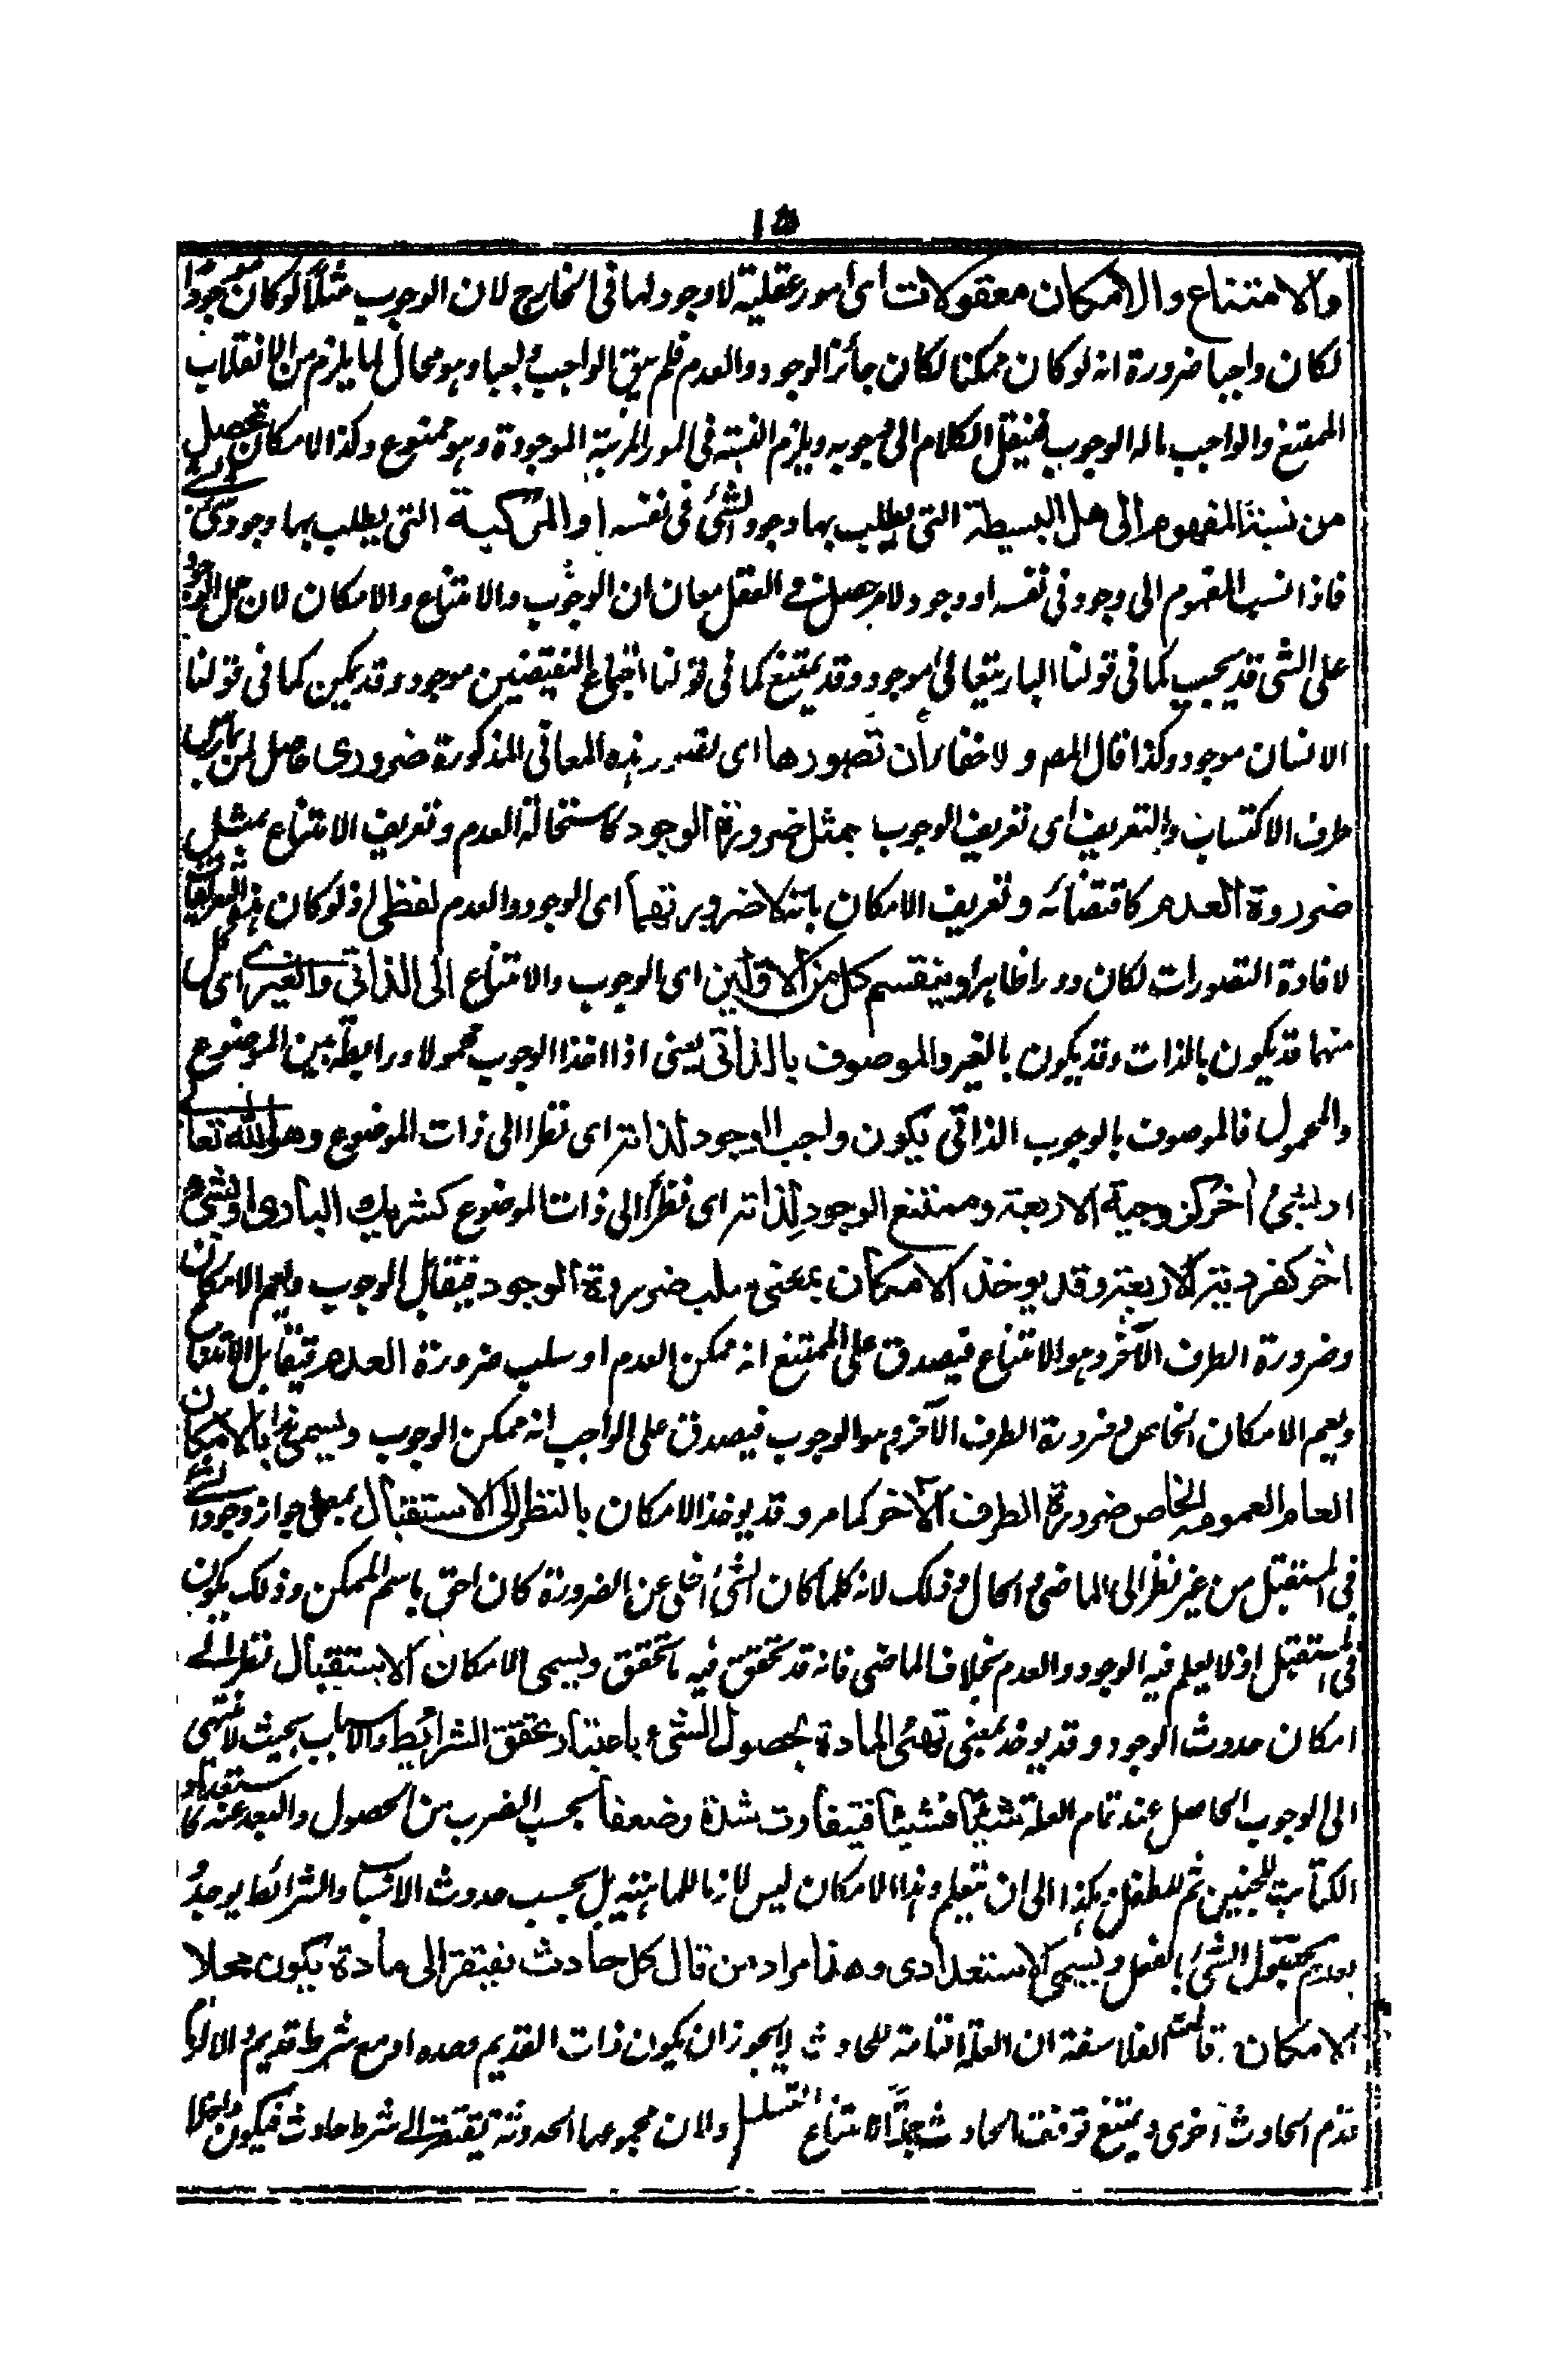 ١٥
والامتناع والامكان معقولات اى امور عقلية لا وجود لها فى الخارج لان الوجوب مثلاً لو كان موجودًا
لكان واجبا ضرورة انه لو كان ممكنا لكان جائز الوجود والعدم فلم يبق الواجب واجبا وهو محال لما يلزم من الانقلاب
الممتنع والواجب ماله الوجوب فينقل الكلام الى وجوبه ويلزم التسلسل فى الامور المرتبة الموجودة وهو ممنوع وكذا الامكان تحصل
من نسبة المفهوم الى هل البسيطة التى يطلب بها وجود الشئ فى نفسه او المركبة التى يطلب بها وجود شئ لشئ
فاذا نسب المفهوم الى وجود فى نفسه او وجود لامر حصلت فى العقل معان ان الوجوب والامتناع والامكان لان حمل الوجود
على الشى قد يجب كما فى قولنا البارى تعالى موجود وقد يمتنع كما فى قولنا اجتماع النقيضين موجود وقد يمكن كما فى قولنا
الانسان موجود وكذا قال المصـ ولا خفاء ان تصورها اى تصور هذه المعانى المذكورة ضرورى حاصل لمن يمارس
طرف الاكتساب والتعريف اى تعريف الوجوب بمثل ضرورة الوجود كاستحالة العدم وتعريف الامتناع بمثل
ضرورة العدم كاقتضائه وتعريف الامكان بانه لا ضرورتهما اى الوجود والعدم لفظى اذ لو كان هذه التعريفات
لافادة التصورات لكان دورا ظاهرا وينقسم كل من الاولين اى الوجوب والامتناع الى الذاتى والغيرى اى كل
منهما قد يكون بالذات وقد يكون بالغير والموصوف بالذاتى يعنى اذا اخذ الوجوب محمولا ورابطة بين الموضوع
والمحمول فالموصوف بالوجوب الذاتى يكون واجب الوجود لذاته اى نظرا الى ذات الموضوع وهو الله تعالى
او لشئ اخر كزوجية الاربعة وممتنع الوجود لذاته اى نظرًا الى ذات الموضوع كشريك البارى او لشئ
اخر كفردية الاربعة وقد يوخذ الامكان بمعنى سلب ضرورة الوجود فيقابل الوجوب ويعم الامكان
وضرورة الطرف الآخر وهو الامتناع فيصدق على الممتنع انه ممكن العدم او سلب ضرورة العدم فيقابل الامتناع
ويعم الامكان الخاص وضرورة الطرف الآخر وهو الوجوب فيصدق على الواجب انه ممكن الوجوب ويسمى هذا بالامكان
العام والعمومه الخاص ضرورة الطرف الآخر كما مر وقد يوخذ الامكان بالنظر الى الاستقبال بمعنى جواز وجود الشئ
فى المستقبل من غير نظر الى الماضى والحال وذلك لانه كلما كان الشئ اخلى عن الضرورة كان احق باسم الممكن وذلك يكون
فى المستقبل اذ لا يعلم فيه الوجود والعدم بخلاف الماضى فانه قد تحقق فيه ما تحقق ويسمى الامكان الاستقبال نظرا الى
امكان حدوث الوجود وقد يوخذ بمعنى تهئى المادة بحصول الشئ باعتبار تحقق الشرائط والاسباب بحيث لا ينتهى
الى الوجوب الحاصل عند تمام العلة شيئا فشيئا فيتفاوت شدة وضعفا بحسب القرب من الحصول والبعد عنه كاستعداد
الكتابة للجنين ثم للطفل وهكذا الى ان يتعلم وهذا الامكان ليس لازما للماهية بل بحسب حدوث الاسباب والشرائط يوجد
بعد ثم يحتقل الشئ بالفعل ويسمى الاستعدادى وهذا مراد من قال كل حادث يفتقر الى مادة يكون محلا
الامكان. قالت الفلاسفة ان العلة التامة للحادث لا يجوز ان يكون ذات القديم وحده او مع شرط قديم والا لزم
قدم الحادث اخرى ويمتنع توقف الحادث لامتناع التسلسل ولان مجموعها الحدوثه تفتقر الى شرط حادث فيكون داخلا